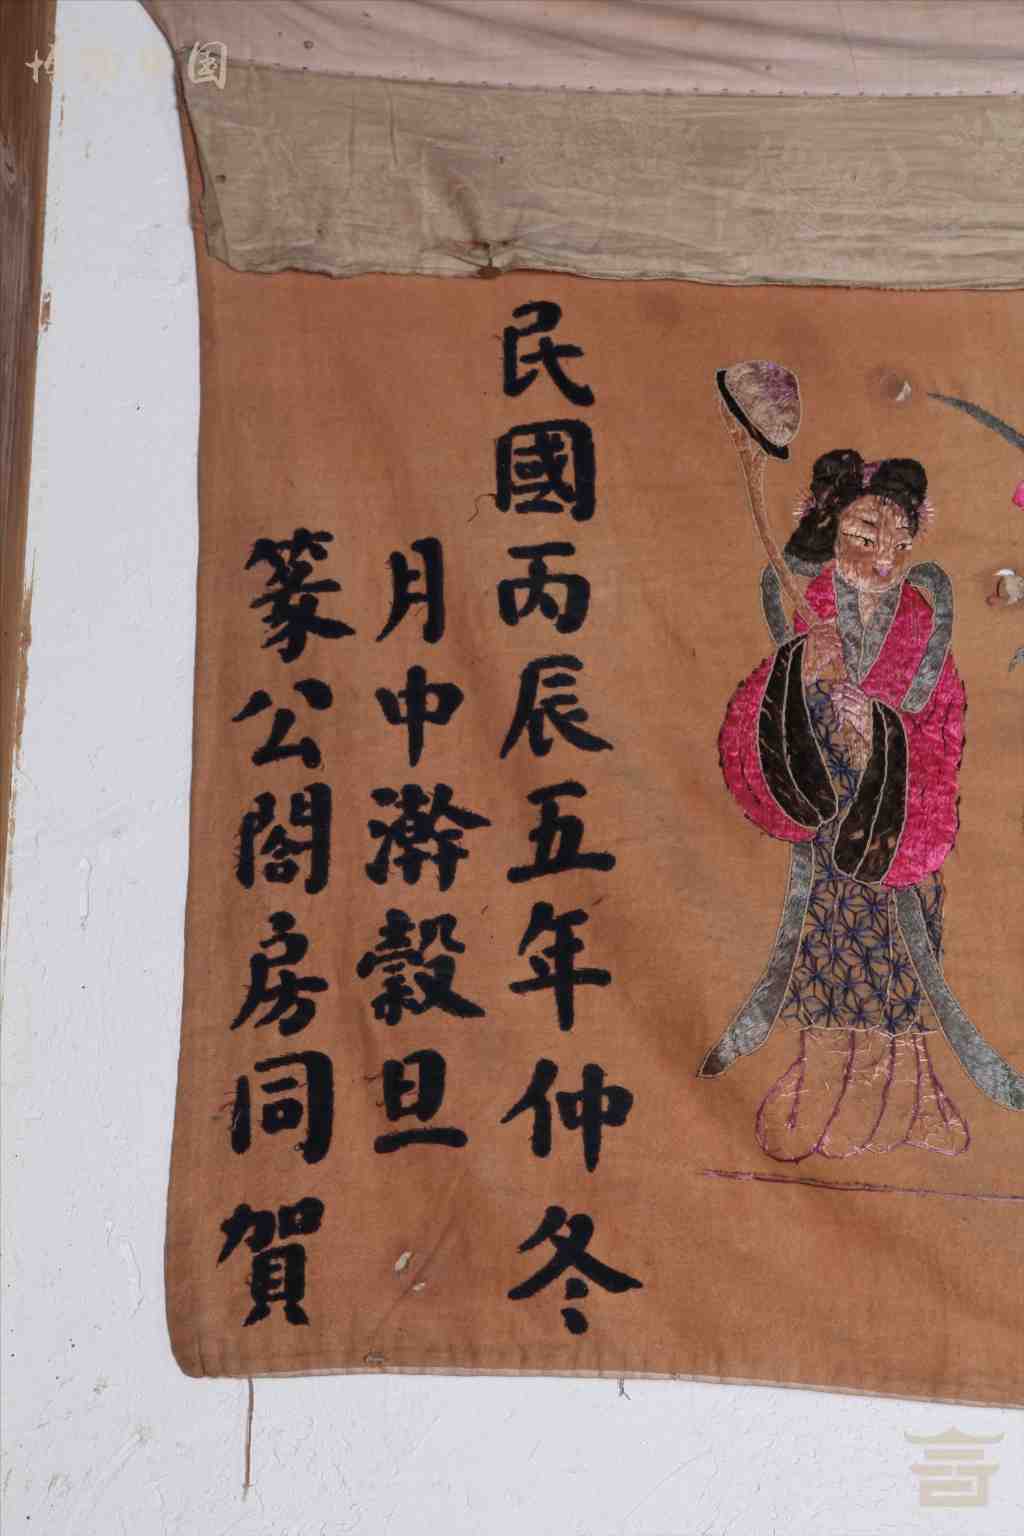 民國丙辰五年仲冬
月中澣穀旦
篆公閤房同賀